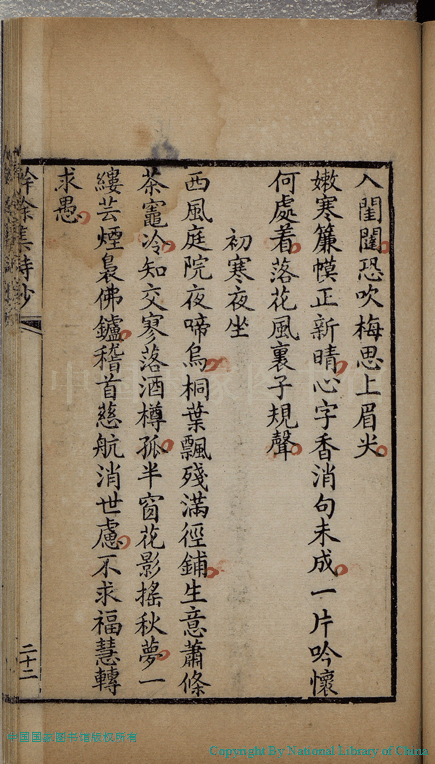 入闺闥恐吹梅思上眉尖
嫩寒簾幙正新晴心字香消句未成一片吟懷
何處着落花風裏子規聲
初寒夜坐
西風庭院夜啼烏桐葉飄殘滿徑鋪生意蕭條
茶竈冷知交寥落酒樽孤半窗花影搖秋夢一
縷芸煙裊佛鑪稽首慈航消世慮不求福慧轉
求愚
餘集詩鈔
二十二
中国国家图书馆版权所有
Copyright By National Library of China